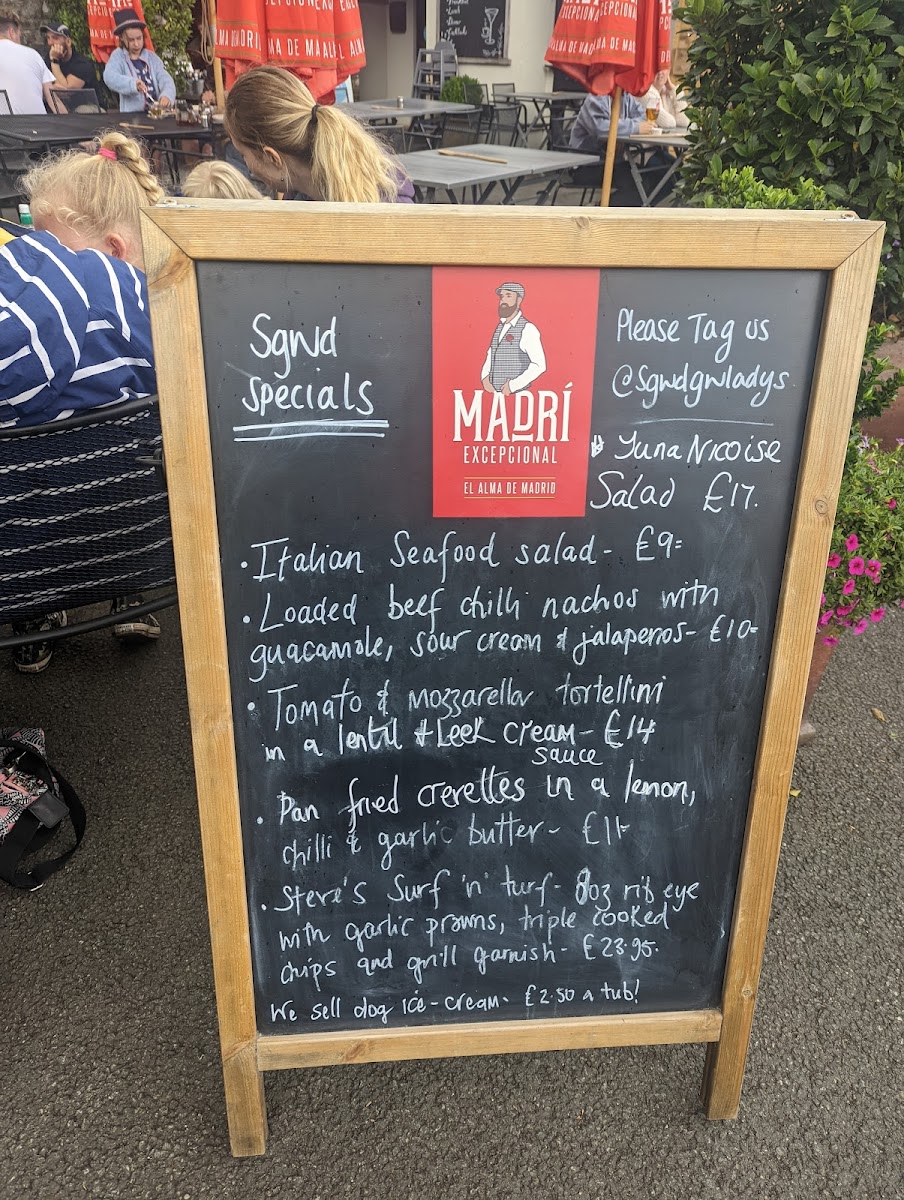 EXCEPCIONAL
ALMA DE MADRID
Sgwd
specials
MADRÍ
EXCEPCIONAL
EL ALMA DE MADRID
Please Tag us
@sgwdgwladys
Tuna Nicoise
Salad £17.
• Italian Seafood salad - £9=
• Loaded beef chilli nachos with
guacamole, sour cream & jalapenos - £10=
• Tomato & mozzarella tortellini
in a lentil & Leek cream - £14
sauce
• Pan fried crevettes in a lemon,
chilli & garlic butter -
• Steve's Surf 'n' turf - 8oz rib eye
with garlic prawns, triple cooked
chips and grill garnish - £23.95.
We sell dog ice-cream - £2.50 a tub!